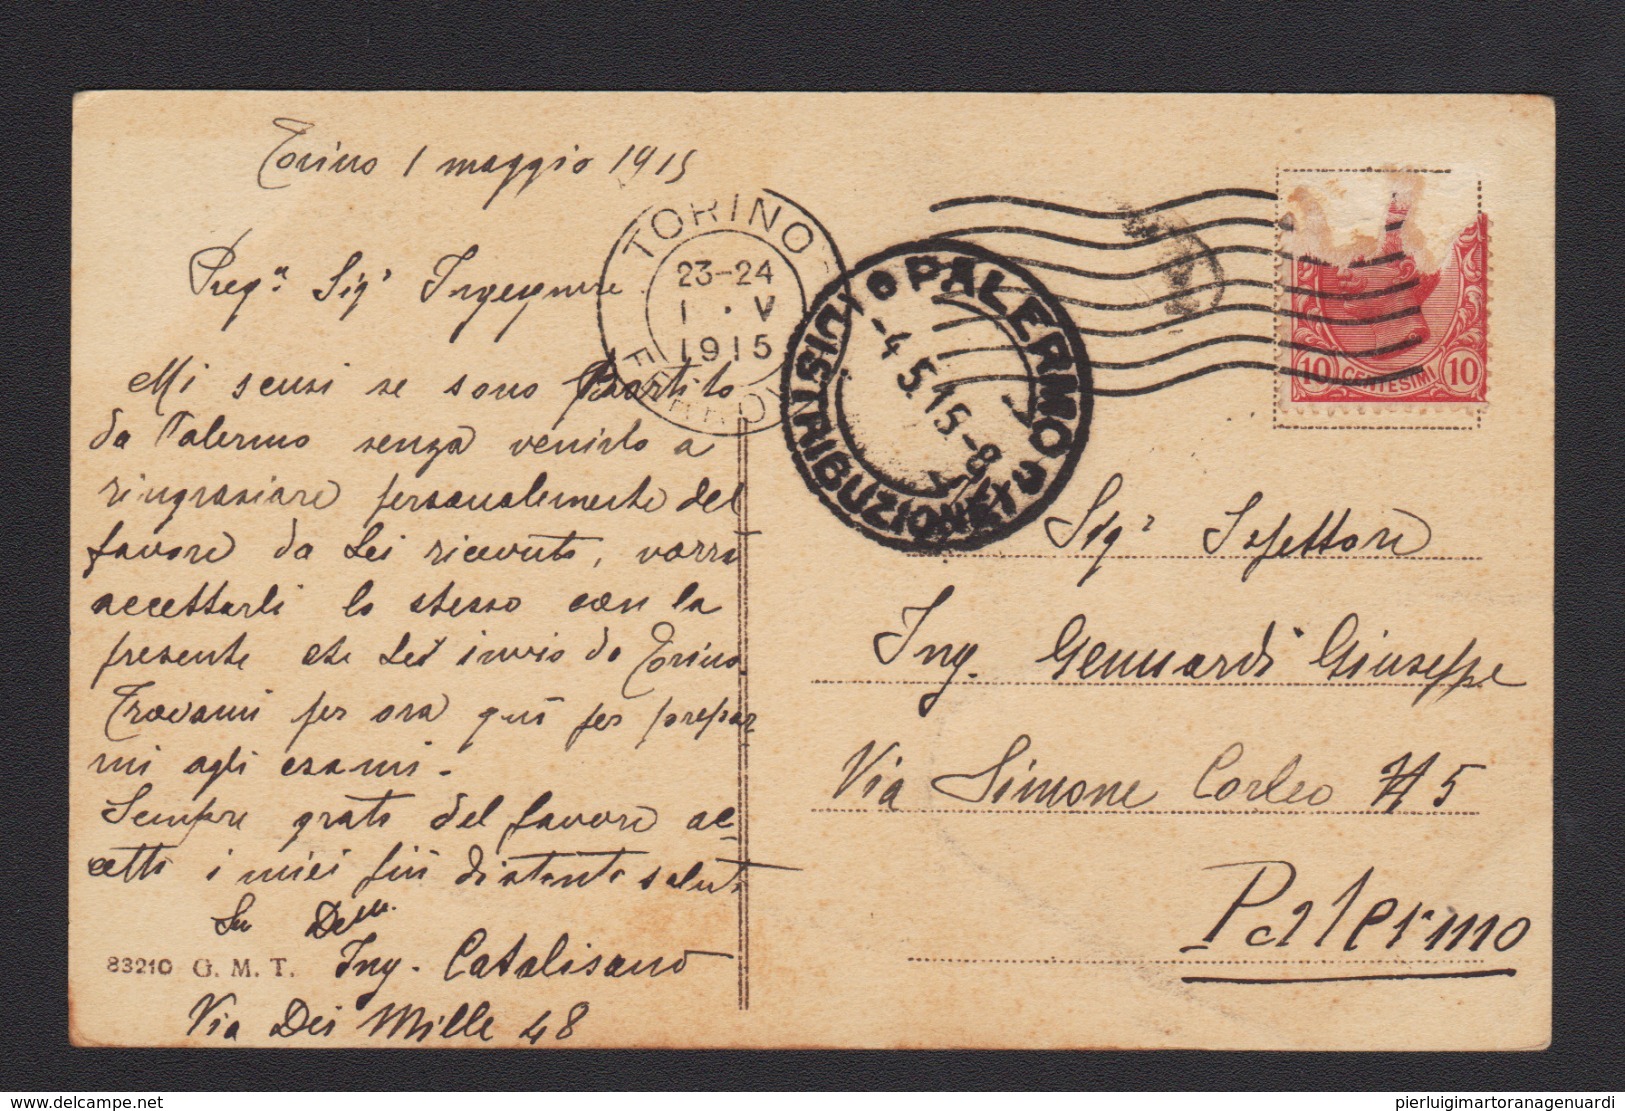 Torino 1 maggio 1915
Preg.º Sig.r Ingegnere
Mi scusi se sono Partito
da Palermo senza venirlo a
ringrasiare personalmente del
favore da Lei ricevuto, vorrà
accettarli lo stesso con la
presente che Lei invio da Torino.
Trovami per ora qui per prepar
mi agli esami.
Sempre grato del favore ac-
cetti i miei più distinti saluti
Su Dev.mo
Ing. Catalisano
Via Dei Mille 48
83210 G. M. T.
TORINO
23-24
1 . V
1915
FERROVIA
PALERMO
-4.5.15-8
DISTRIBUZIONE
10 CENTESIMI 10
Sig.r Ispettore
Ing. Gennuardi Giuseppe
Via Simone Corleo N 5
Palermo
www.delcampe.net
pierluigimartoranagenuardi